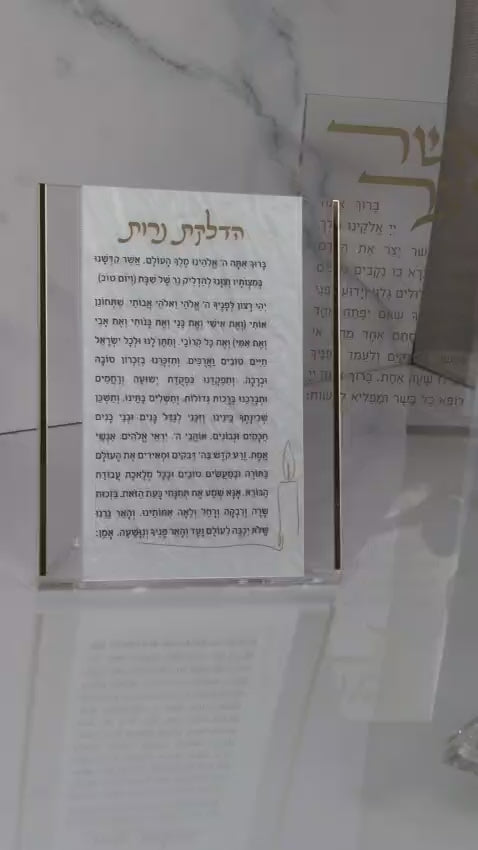 הדלקת נרות
בָּרוּךְ אַתָּה ה' אֱלֹהֵינוּ מֶלֶךְ הָעוֹלָם. אֲשֶׁר קִדְּשָׁנוּ
בְּמִצְוֹתָיו וְצִוָּנוּ לְהַדְלִיק נֵר שֶׁל שַׁבָּת (וְיוֹם טוֹב)
יְהִי רָצוֹן לְפָנֶיךָ ה' אֱלֹהַי וֵאלֹהֵי אֲבוֹתַי שֶׁתְּחוֹנֵן
אוֹתִי (וְאֶת אִישִׁי וְאֶת בָּנַי וְאֶת בְּנוֹתַי וְאֶת אָבִי
וְאֶת אִמִּי) וְאֶת כָּל קְרוֹבַי. וְתִתֵּן לָנוּ וּלְכָל יִשְׂרָאֵל
חַיִּים טוֹבִים וַאֲרֻכִּים. וְתִזְכְּרֵנוּ בְּזִכְרוֹן טוֹבָה
וּבְרָכָה. וְתִפְקְדֵנוּ בִּפְקֻדַּת יְשׁוּעָה וְרַחֲמִים
וּתְבָרְכֵנוּ בְּרָכוֹת גְּדוֹלוֹת. וְתַשְׁלִים בָּתֵּינוּ. וְתַשְׁכֵּן
שְׁכִינָתְךָ בֵּינֵינוּ. וְזַכֵּנִי לְגַדֵּל בָּנִים וּבְנֵי בָנִים
חֲכָמִים וּנְבוֹנִים. אוֹהֲבֵי ה' יִרְאֵי אֱלֹהִים. אַנְשֵׁי
אֱמֶת. זֶרַע קֹדֶשׁ בַּה' דְּבֵקִים וּמְאִירִים אֶת הָעוֹלָם
בַּתּוֹרָה וּבְמַעֲשִׂים טוֹבִים וּבְכָל מְלֶאכֶת עֲבוֹדַת
הַבּוֹרֵא. אָנָּא שְׁמַע אֶת תְּחִנָּתִי בָּעֵת הַזֹּאת. בִּזְכוּת
שָׂרָה וְרִבְקָה וְרָחֵל וְלֵאָה אִמּוֹתֵינוּ. וְהָאֵר נֵרֵנוּ
שֶׁלֹּא יִכְבֶּה לְעוֹלָם וָעֶד וְהָאֵר פָּנֶיךָ וְנִוָּשֵׁעָה. אָמֵן:
אשר
יצר
בָּרוּךְ
יְיָ אֱלֹקֵינוּ
יָצַר אֶת
בוֹ נְקָבִים
שֶׁאִם יִפָּתֵחַ
אֶחָד
וְלַעֲמֹד
שָׁעָה אֶחָת. בָּרוּךְ
רוֹפֵא כָל בָּשָׂר וּמַפְלִיא לַעֲשׂוֹת: